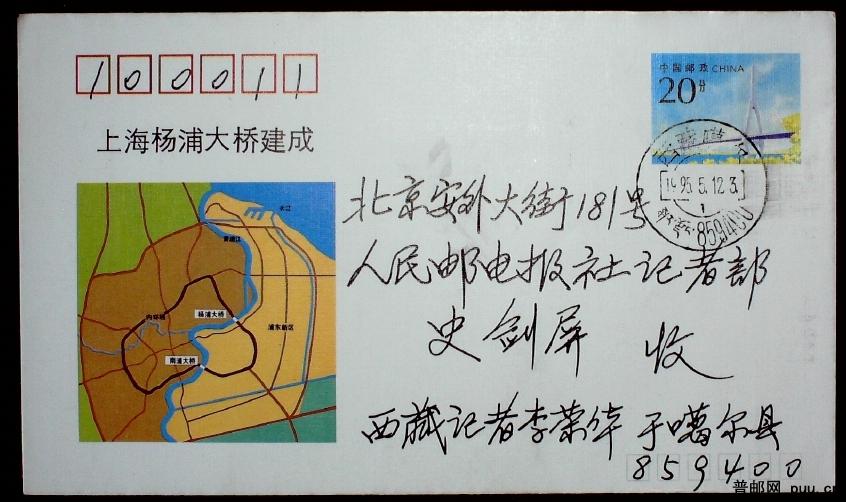 100011
中国邮政 CHINA
20分
上海杨浦大桥建成
1995.5.12.3
1
859400
长江
黄浦江
内环线
杨浦大桥
浦东新区
南浦大桥
北京安外大街181号
人民邮电报社记者部
史剑屏 收
西藏记者李荣华 于噶尔县
859400
普邮网 puu.c